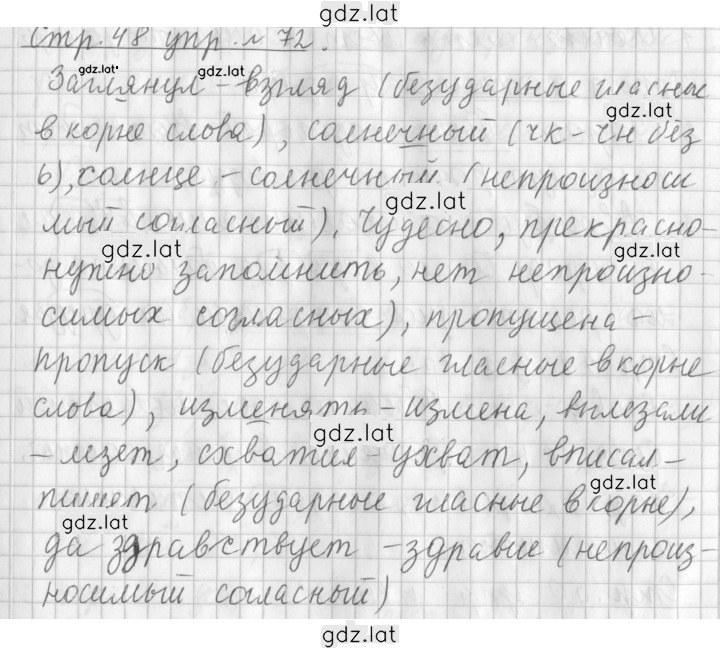 gdz.lat
Стр. 48 упр. № 72.
gdz.lat gdz.lat
Заглянул - взгляд (безударные гласные
gdz.lat
в корне слова), солнечный (чк - чн без
ь), солнце - солнечный (непроизноси
gdz.lat
мый согласный). Чудесно, прекрасно-
gdz.lat gdz.lat
нужно запомнить, нет непроизно-
симых согласных), пропущена -
пропуск (безударные гласные в корне
слова), изменять - измена, вылезали
gdz.lat
- лезет, схватил - ухват, вписал -
gdz.lat
пишет (безударные гласные в корне),
gdz.lat
да здравствует - здравие (непроиз-
носимый согласный)
gdz.lat